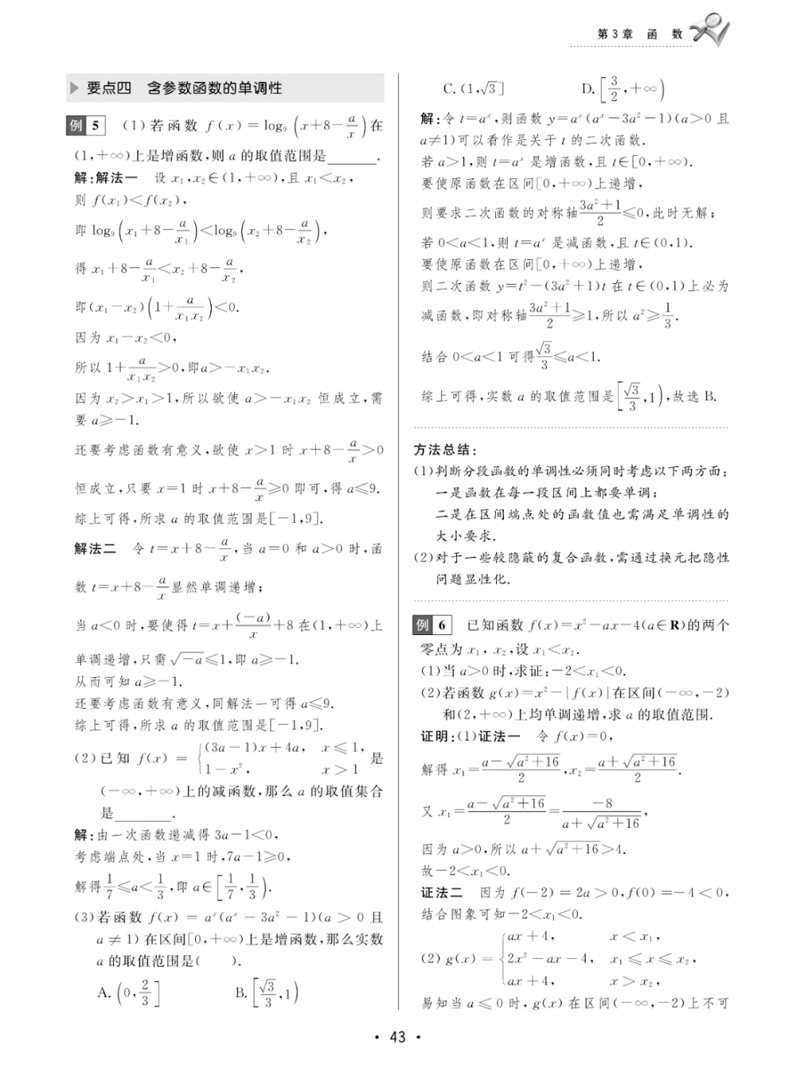 第3章 函 数
要点四 含参数函数的单调性
例 5 (1)若函数 f(x)=log₉(x+8-a/x)在
(1,+∞)上是增函数,则 a 的取值范围是_______.
解:解法一 设 x₁,x₂∈(1,+∞),且 x₁<x₂,
则 f(x₁)<f(x₂),
即 log₉(x₁+8-a/x₁)<log₉(x₂+8-a/x₂),
得 x₁+8-a/x₁<x₂+8-a/x₂,
即(x₁-x₂)(1+a/(x₁x₂))<0.
因为 x₁-x₂<0,
所以 1+a/(x₁x₂)>0,即a>-x₁x₂.
因为 x₂>x₁>1,所以欲使 a>-x₁x₂ 恒成立,需
要 a≥-1.
还要考虑函数有意义,欲使 x>1 时 x+8-a/x>0
恒成立,只要 x=1 时 x+8-a/x≥0 即可,得 a≤9.
综上可得,所求 a 的取值范围是[-1,9].
解法二 令 t=x+8-a/x,当 a=0 和 a>0 时,函
数 t=x+8-a/x显然单调递增;
当 a<0 时,要使得 t=x+(-a)/x+8 在(1,+∞)上
单调递增,只需 √(-a)≤1,即 a≥-1.
从而可知 a≥-1.
还要考虑函数有意义,同解法一可得 a≤9.
综上可得,所求 a 的取值范围是[-1,9].
(2)已知 f(x) = {(3a-1)x+4a, x≤1,
1-x², x>1 是
(-∞,+∞)上的减函数,那么 a 的取值集合
是_______.
解:由一次函数递减得 3a-1<0,
考虑端点处,当 x=1 时,7a-1≥0,
解得1/7≤a<1/3,即 a∈[1/7,1/3).
(3)若函数 f(x) = aˣ(aˣ - 3a² - 1)(a > 0 且
a ≠ 1)在区间[0,+∞)上是增函数,那么实数
a 的取值范围是( ).
A. (0,2/3] B. [√3/3,1)
C. (1,√3] D. [3/2,+∞)
解:令 t=aˣ,则函数 y=aˣ(aˣ-3a²-1)(a>0 且
a≠1)可以看作是关于 t 的二次函数.
若 a>1,则 t=aˣ 是增函数,且 t∈[0,+∞).
要使原函数在区间[0,+∞)上递增,
则要求二次函数的对称轴(3a²+1)/2≤0,此时无解;
若 0<a<1,则 t=aˣ 是减函数,且 t∈(0,1).
要使原函数在区间[0,+∞)上递增,
则二次函数 y=t²-(3a²+1)t 在 t∈(0,1)上必为
减函数,即对称轴(3a²+1)/2≥1,所以 a²≥1/3.
结合 0<a<1 可得√3/3≤a<1.
综上可得,实数 a 的取值范围是[√3/3,1),故选 B.
方法总结:
(1)判断分段函数的单调性必须同时考虑以下两方面:
一是函数在每一段区间上都要单调;
二是在区间端点处的函数值也需满足单调性的
大小要求.
(2)对于一些较隐蔽的复合函数,需通过换元把隐性
问题显性化.
例 6 已知函数 f(x)=x²-ax-4(a∈R)的两个
零点为 x₁,x₂,设 x₁<x₂.
(1)当 a>0 时,求证:-2<x₁<0.
(2)若函数 g(x)=x²-|f(x)|在区间(-∞,-2)
和(2,+∞)上均单调递增,求 a 的取值范围.
证明:(1)证法一 令 f(x)=0,
解得 x₁=(a-√(a²+16))/2,x₂=(a+√(a²+16))/2.
又 x₁=(a-√(a²+16))/2=-8/(a+√(a²+16)),
因为 a>0,所以 a+√(a²+16)>4.
故-2<x₁<0.
证法二 因为 f(-2) = 2a > 0,f(0) =-4 < 0,
结合图象可知-2<x₁<0.
(2) g(x) = {ax+4, x<x₁,
2x²-ax-4, x₁≤x≤x₂,
ax+4, x>x₂,
易知当 a ≤ 0 时,g(x) 在区间(-∞,-2)上不可
• 43 •